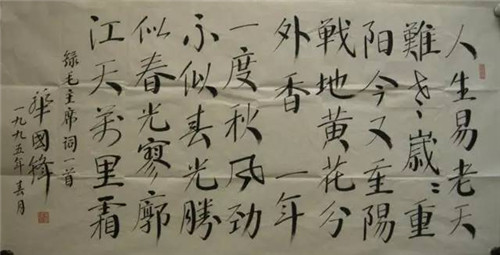 人生易老天
難老歲〻重
陽今又重陽
戰地黃花分
外香 一年
一度秋风勁
不似春光勝
似春光寥廓
江天萬里霜
錄毛主席詞一首
華國鋒
一九九五年春月